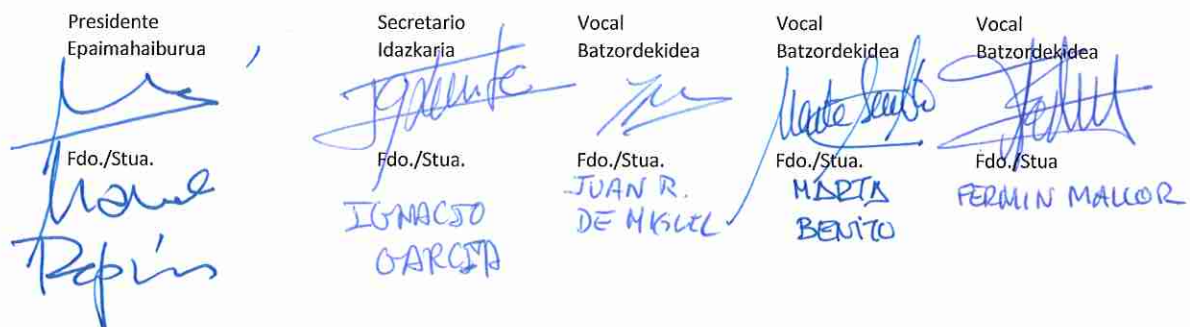 Presidente
Epaimahaiburua
Fdo./Stua.
Secretario
Idazkaria
Fdo./Stua.
IGNACIO
GARCIA
Vocal
Batzordekidea
Fdo./Stua.
JUAN R.
DE MIGUEL
Vocal
Batzordekidea
Fdo./Stua.
MARTA
BENITO
Vocal
Batzordekidea
Fdo./Stua
FERMIN MALLOR